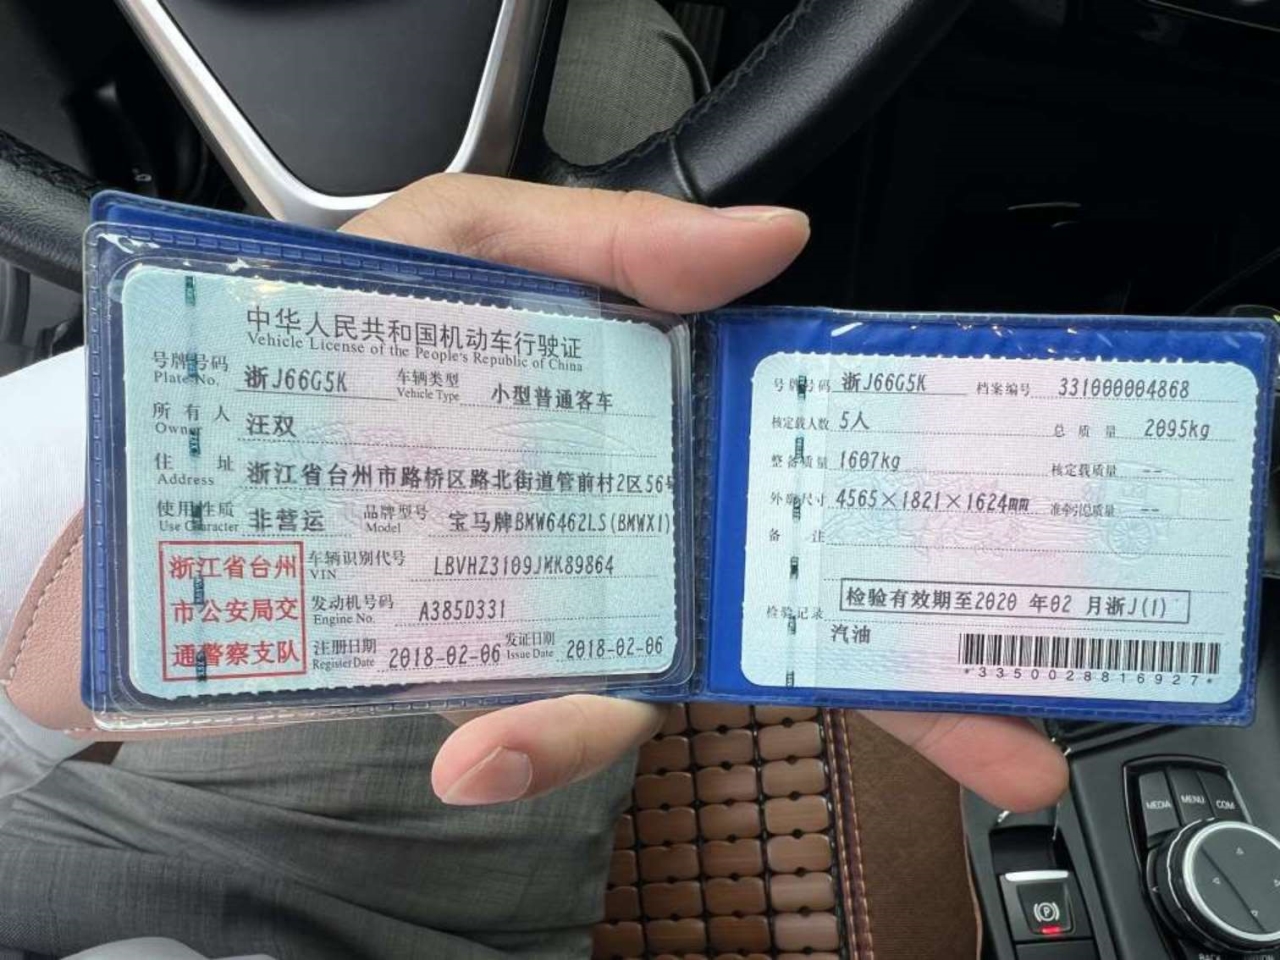 中华人民共和国机动车行驶证
Vehicle License of the People's Republic of China
号牌号码 浙J66G5K 车辆类型 小型普通客车
Plate No. Vehicle Type
所有人 汪双
Owner
住址 浙江省台州市路桥区路北街道管前村2区56号
Address
使用性质 非营运 品牌型号 宝马牌BMW6462LS(BMWX1)
Use Character Model
浙江省台州
市公安局交
通警察支队
车辆识别代号 LBVHZ3109JMK89864
VIN
发动机号码 A385D331
Engine No.
注册日期 2018-02-06 发证日期 2018-02-06
Register Date Issue Date
号牌号码 浙J66G5K 档案编号 331000004868
核定载人数 5人 总质量 2095kg
整备质量 1607kg 核定载质量 --
外廓尺寸 4565×1821×1624mm 准牵引总质量 --
备注
检验记录 检验有效期至2020 年02 月浙J(1)
汽油
*3350028816927*
MEDIA MENU COM
P
BACK OPTION